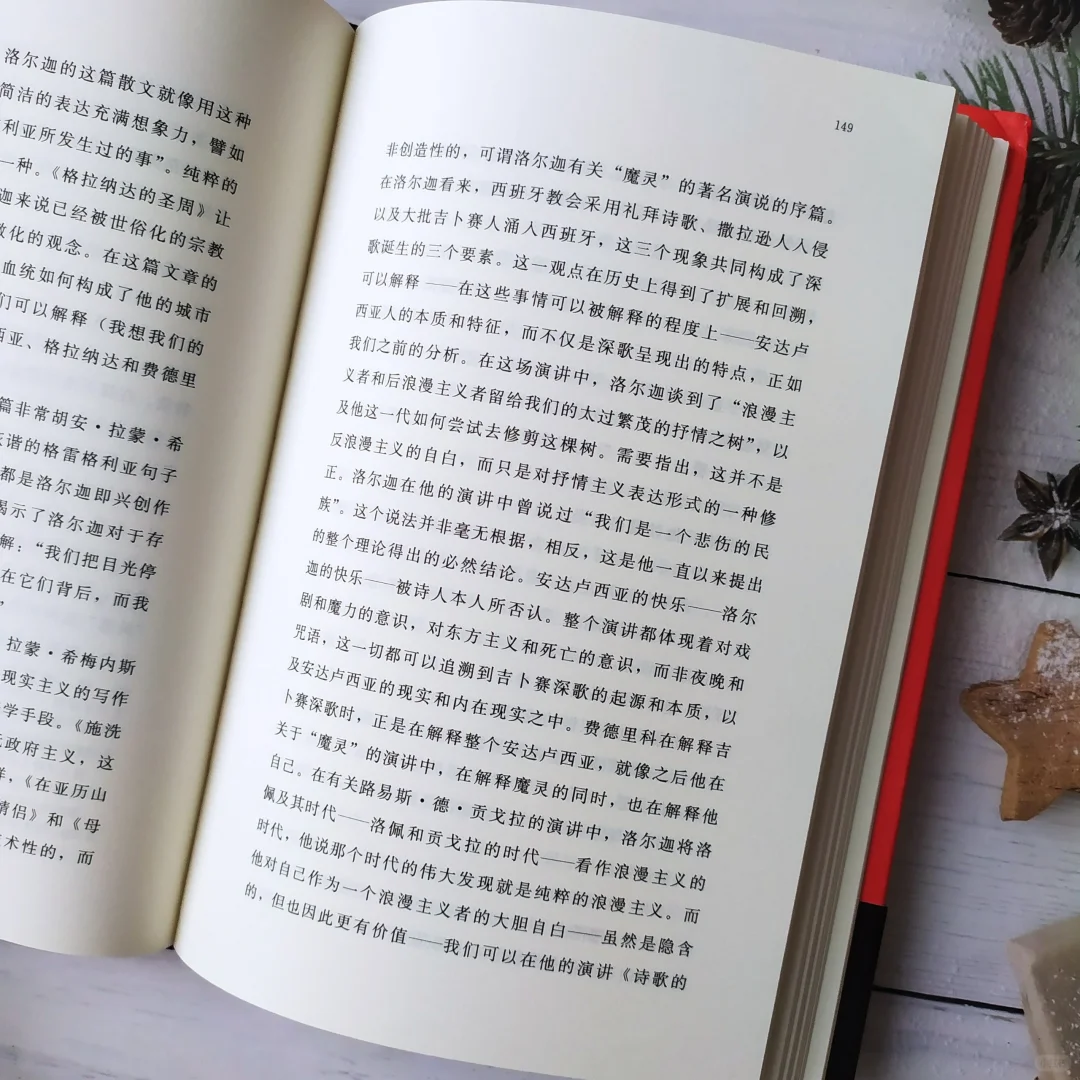 洛尔迦的这篇散文就像用这种
简洁的表达充满想象力，譬如
利亚所发生过的事”。纯粹的
一种。《格拉纳达的圣周》让
迦来说已经被世俗化的宗教
化的观念。在这篇文章的
血统如何构成了他的城市
们可以解释（我想我们的
西亚、格拉纳达和费德里
篇非常胡安·拉蒙·希
谐的格雷格利亚句子
都是洛尔迦即兴创作
揭示了洛尔迦对于存
解：“我们把目光停
在它们背后，而我
”
拉蒙·希梅内斯
现实主义的写作
学手段。《施洗
无政府主义，这
样，《在亚历山
情侣》和《母
术性的，而
149
非创造性的，可谓洛尔迦有关“魔灵”的著名演说的序篇。
在洛尔迦看来，西班牙教会采用礼拜诗歌、撒拉逊人入侵
以及大批吉卜赛人涌入西班牙，这三个现象共同构成了深
歌诞生的三个要素。这一观点在历史上得到了扩展和回溯，
可以解释——在这些事情可以被解释的程度上——安达卢
西亚人的本质和特征，而不仅是深歌呈现出的特点，正如
我们之前的分析。在这场演讲中，洛尔迦谈到了“浪漫主
义者和后浪漫主义者留给我们的太过繁茂的抒情之树”，以
及他这一代如何尝试去修剪这棵树。需要指出，这并不是
反浪漫主义的自白，而只是对抒情主义表达形式的一种修
正。洛尔迦在他的演讲中曾说过“我们是一个悲伤的民
族”。这个说法并非毫无根据，相反，这是他一直以来提出
的整个理论得出的必然结论。安达卢西亚的快乐——洛尔
迦的快乐——被诗人本人所否认。整个演讲都体现着对戏
剧和魔力的意识，对东方主义和死亡的意识，而非夜晚和
咒语，这一切都可以追溯到吉卜赛深歌的起源和本质，以
及安达卢西亚的现实和内在现实之中。费德里科在解释吉
卜赛深歌时，正是在解释整个安达卢西亚，就像之后他在
关于“魔灵”的演讲中，在解释魔灵的同时，也在解释他
自己。在有关路易斯·德·贡戈拉的演讲中，洛尔迦将洛
佩及其时代——洛佩和贡戈拉的时代——看作浪漫主义的
时代，他说那个时代的伟大发现就是纯粹的浪漫主义。而
他对自己作为一个浪漫主义者的大胆自白——虽然是隐含
的，但也因此更有价值——我们可以在他的演讲《诗歌的